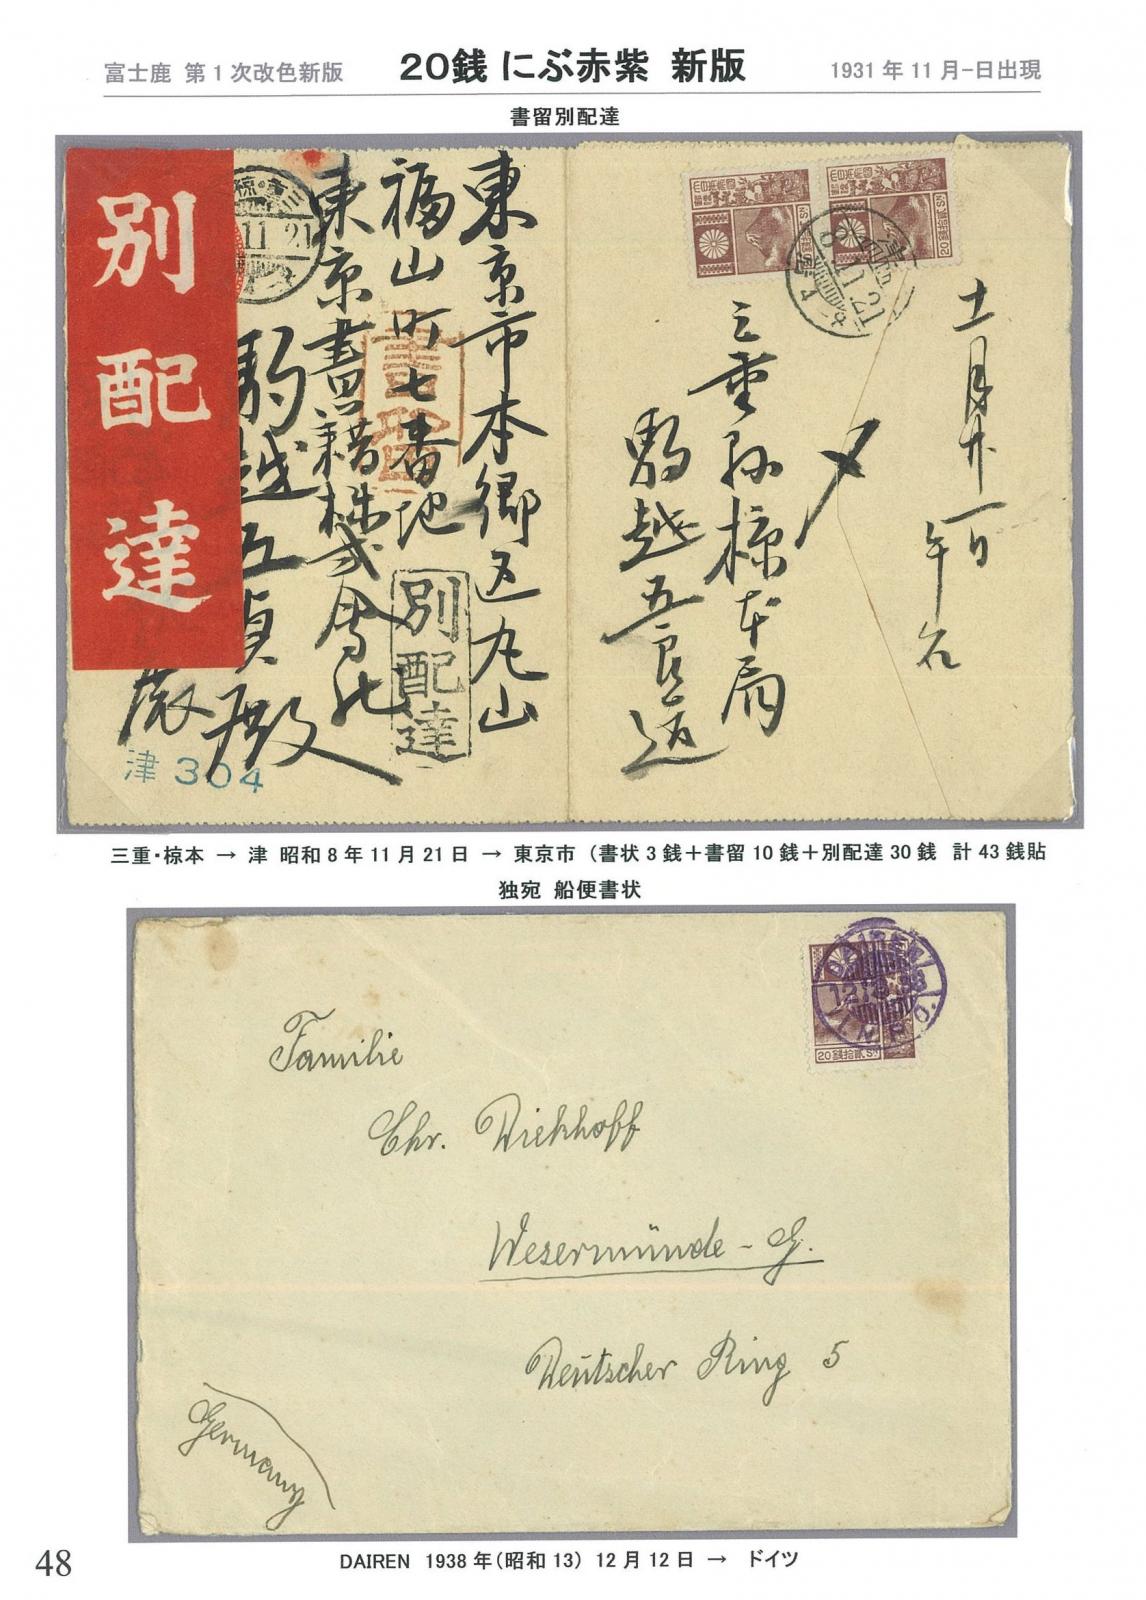 富士鹿 第1次改色新版
20銭 にぶ赤紫 新版
1931年11月-日出現
書留別配達
別配達
東京市本郷区丸山
福山町七番地
東京書籍株式會社
駒越五貞殿
書留
別配達
津304
20銭拾貳Sn
十一月廿一日
午后
〆
三重縣椋本局
駒越五良
三重・椋本 → 津 昭和8年11月21日 → 東京市 (書状3銭+書留10銭+別配達30銭 計43銭貼
独宛 船便書状
DAIREN
I.N.P.O.
20銭拾貳Sn
Familie
Chr. Diekhoff
Wesermünde - G.
Deutscher Ring 5
Germany
DAIREN 1938年(昭和13) 12月12日 → ドイツ
48